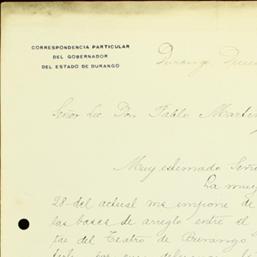 CORRESPONDENCIA PARTICULAR
DEL GOBERNADOR
DEL ESTADO DE DURANGO
Durango
Señor Lic. Don Pablo
Muy estimado Seño
La muy
28 del actual me impone de
las bases de arreglo entre el
del Teatro de Durango